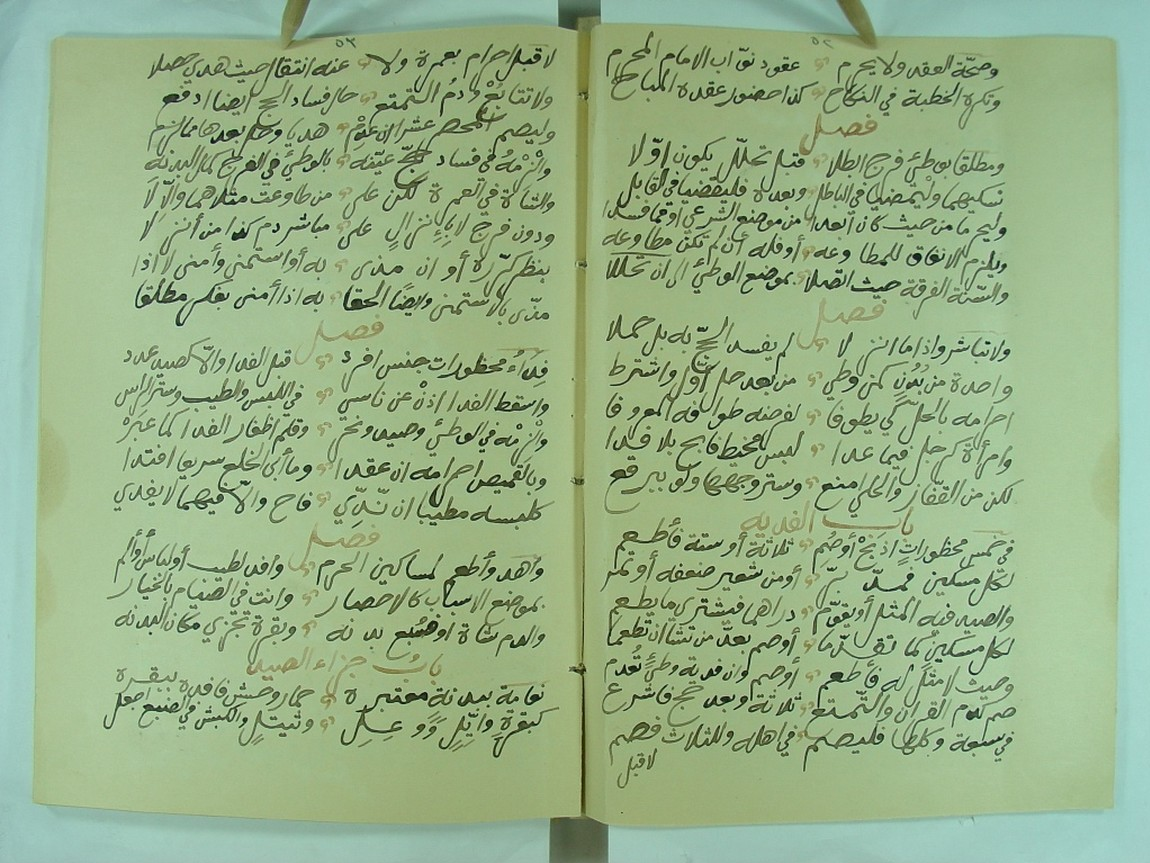 ٥٢
وصحّة العقد ولا يحرم عقود نوّاب الامام المحرم
وتكره الخطبة في النكاح كذا حضور عقدة المباح
فصل
ومطلقا بوطئ فرج ابطلا قبل تحلّل يكون اوّلا
نسكيهما وليمضيا في الباطل وبعده فليقضيا في القابل
وليحرما من حيث كان ابعدا من موضع الشرعي او مما فسدا
ويلزم الانفاق للمطاوعه أو فله أن لم تكن مطاوعه
والسنة الفرقة حيث القضا بموضع الوطئ الى ان تحللا
فصل
ولا تباشر واذا ما انزلا لم يفسد الحجّ به بل حملا
واحدة من بدن كمن وطي من بعد حل أول واشترط
احرامه بالحل كي يطوفا لفرضه طوافه المعروفا
وامرأة كرجل فيما عدا لبس المخيط فابح بلا فدا
لكن من القفاز والحلي امنع وستر وجهها ولو ببرقع
باب الفديه
في خمس محظورات اذبح أو صُم ثلاثة أو ستة فأطعم
لكل مسكين فمدّ برّ أو من شعير ضعفه أو تمر
والصيد فيه المثل أو يقوّم دراهما فمشترى ما يطعم
لكل مسكين كما تقدّما أو صم بعدّ من تشا ان تطعما
وحيث لا مثل له فأطعم أو صم وان فدية وطئ تُعدم
صم كدم القران والتمتع ثلاثة وبعد حج فاشرع
في سبعة وكلها فليصم في اهله وللثلاث فصم
لا قبل
٥٣
لا قبل احرام بعمرة ولا عنه انتقال حيث هدي حصلا
ولا تتابعْ ودمُ التمتع حال فساد الحج ايضا ادفع
وليصم المحصر عشرا ان عدم هديا وحل بعدها مما لزم
والزمه في فساد حجّ عيّنه بالوطئ في الفرج كمال البدنه
والشاة في العمرة لكن على من طاوعت مثلاهما والّا لا
ودون فرج لا بإنزال على مباشر دم كذا من أنزلا
بنظر كرّره أو ان مذى به أو استمنى وأمنى لا اذا
مذّى بالاستمنى وايضا الحقا به اذا أمنى بفكر مطلقا
فصل
فداءُ محظورات جنس افرد قبل الفدا والّا كصيد عدد
واسقط الفدا اذنْ عن ناسي في اللبس والطيب وستر الراس
والزمه في الوطئ وصيد ونحر وقلم اظفار الفدا كما عبر
وبالقميص احرامه ان عقدا وما أبى الخلع سريعا افتدا
كلبسه مطيبا ان ندّي فاح والّا فيهما لا يفدي
فصل
وأهد وأطعم لمساكين الحرم وافد لطيب أو لباس أو ألم
بموضع الاسباب كالاحصار وانت في الصيام بالخيار
والدم شاة او سُبع بدنه وبقرة تجزي مكان البدنه
باب جزاء الصيد
نعامة ببدنة معتبره حمار وحش فافده ببقره
كبقرةٍ وايّلٍ ووعلِ وثيتلٍ والكبش في الضبع اجعل